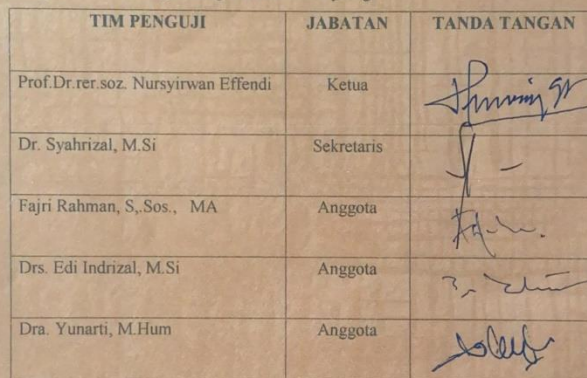 TIM PENGUJI JABATAN TANDA TANGAN
Prof.Dr.rer.soz. Nursyirwan Effendi Ketua
Dr. Syahrizal, M.Si Sekretaris
Fajri Rahman, S,.Sos., MA Anggota
Drs. Edi Indrizal, M.Si Anggota
Dra. Yunarti, M.Hum Anggota